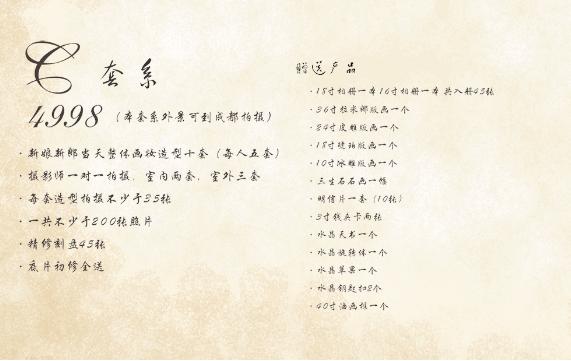 C 套系
4998（本套系外景可到成都拍摄）
· 新娘新郎当天整体画妆造型十套（每人五套）
· 摄影师一对一拍摄，室内两套，室外三套
· 每套造型拍摄不少于35张
· 一共不少于200张照片
· 精修刻盘45张
· 底片初修全送
赠送产品
· 18寸相册一本16寸相册一本 共入册45张
· 36寸拉米娜版画一个
· 24寸皮雕版画一个
· 18寸琥珀版画一个
· 10寸冰雕版画一个
· 三生石石画一幅
· 明信片一套（10张）
· 3寸钱夹卡两张
· 水晶天书一个
· 水晶旋转体一个
· 水晶苹果一个
· 水晶钥匙扣2个
· 40寸油画框一个